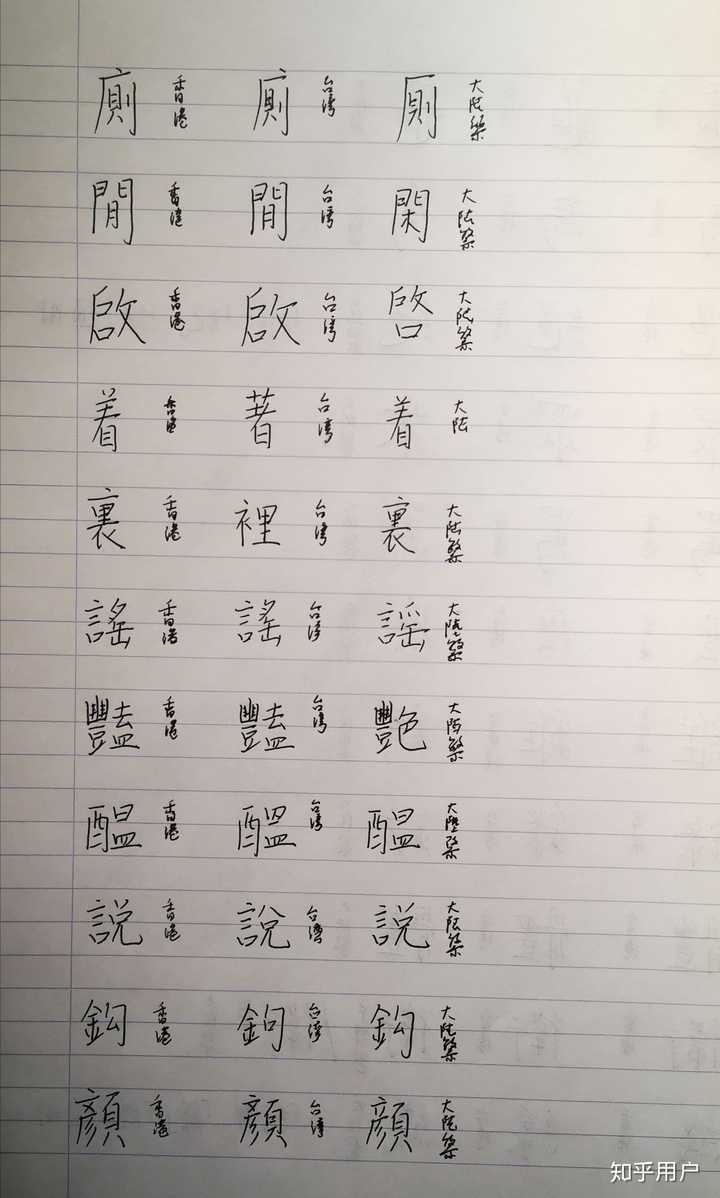 廁 香港 廁 台湾 厠 大陆繁
閒 香港 閒 台湾 閑 大陆繁
啟 香港 啟 台湾 啓 大陆繁
着 香港 著 台湾 着 大陆
裏 香港 裡 台湾 裏 大陆繁
謠 香港 謠 台湾 謡 大陆繁
豔 香港 豔 台湾 艷 大陆繁
醖 香港 醞 台湾 醖 大陆繁
説 香港 說 台湾 説 大陆繁
鈎 香港 鉤 台湾 鈎 大陆繁
顏 香港 顏 台湾 顔 大陆繁
知乎用户